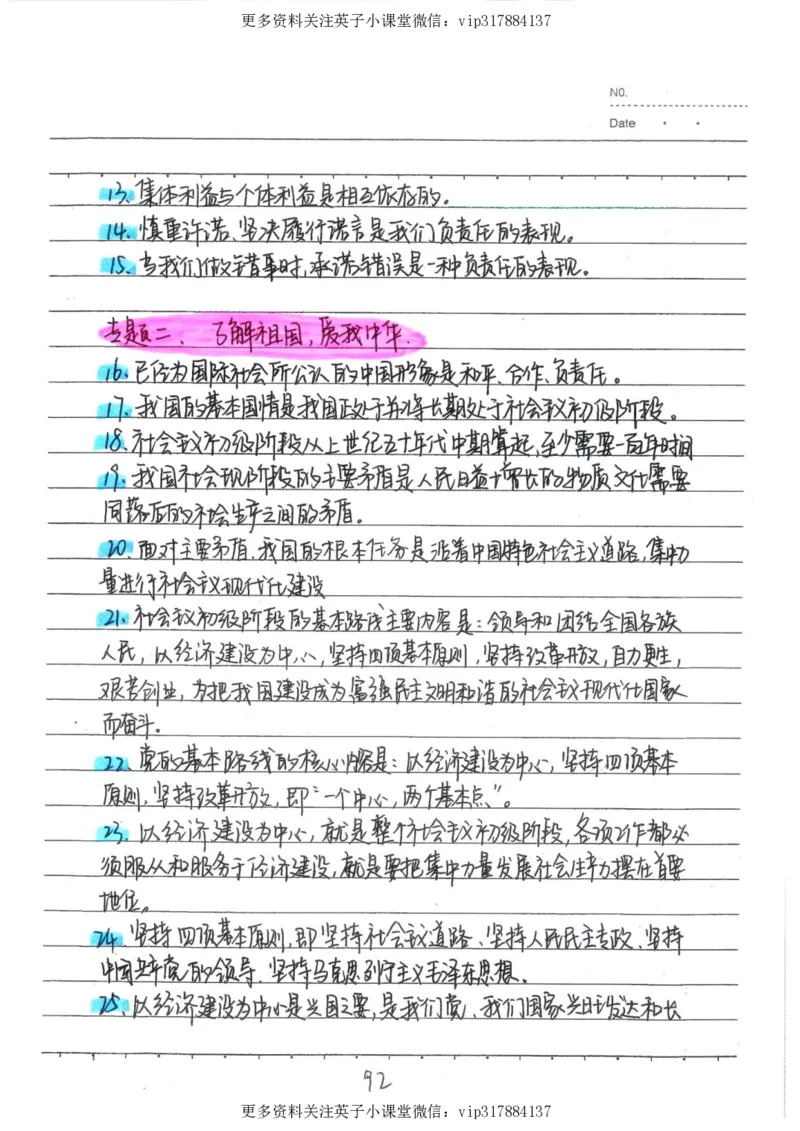 更多资料关注英子小课堂微信：vip317884137
NO.
Date
13、集体利益与个体利益是相互依存的。
14、慎重许诺、坚决履行诺言是我们负责任的表现。
15、当我们做错事时,承诺错误是一种负责任的表现。
专题二、了解祖国,爱我中华.
16、已经为国际社会所公认的中国形象是和平、合作、负责任。
17、我国的基本国情是我国正处于并将长期处于社会主义初级阶段。
18、社会主义初级阶段从上世纪五十年代中期算起,至少需要一百年时间
19、我国社会现阶段的主要矛盾是人民日益增长的物质文化需要
同落后的社会生产之间的矛盾。
20、面对主要矛盾、我国的根本任务是沿着中国特色社会主义道路,集中力
量进行社会主义现代化建设
21、社会主义初级阶段的基本路线主要内容是：领导和团结全国各族
人民，以经济建设为中心,坚持四项基本原则,坚持改革开放,自力更生,
艰苦创业,为把我国建设成为富强民主文明和谐的社会主义现代化国家
而奋斗。
22、党的基本路线的核心内容是：以经济建设为中心,坚持四项基本
原则,坚持改革开放,即“一个中心,两个基本点”。
23、以经济建设为中心,就是整个社会主义初级阶段,各项工作都必
须服从和服务于经济建设,就是要把集中力量发展社会生产力摆在首要
地位。
24、坚持四项基本原则,即坚持社会主义道路、坚持人民民主专政、坚持
中国共产党的领导、坚持马克思列宁主义毛泽东思想。
25、以经济建设为中心是兴国之要,是我们党、我们国家兴旺发达和长
92
更多资料关注英子小课堂微信：vip317884137